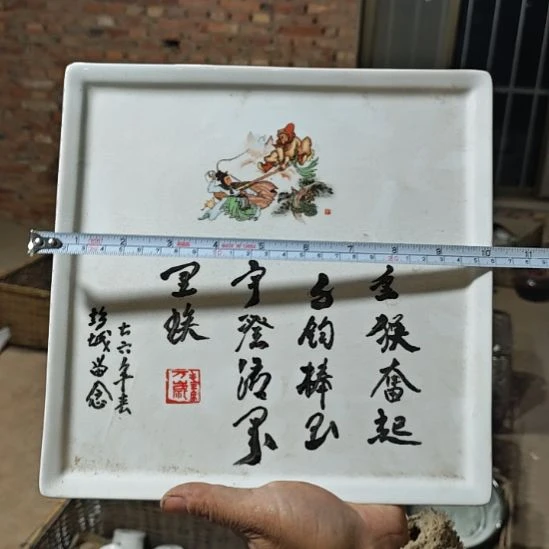 金猴奋起
千钧棒玉
宇澄清万
里埃
七六年春
彭城留念
毛主席
万歲
2 3 4 5 6 7 8 9 10 11